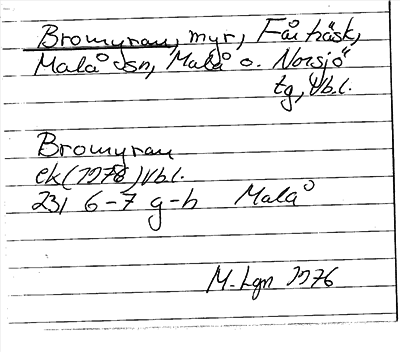 Bromyran, myr, Fårträsk,
Malå dsn, Malå o. Norsjö
tg, Vb.l.
Bromyran
ek (1978) Vb.l.
23I 6-7 g-h Malå
M-Lgn 1976